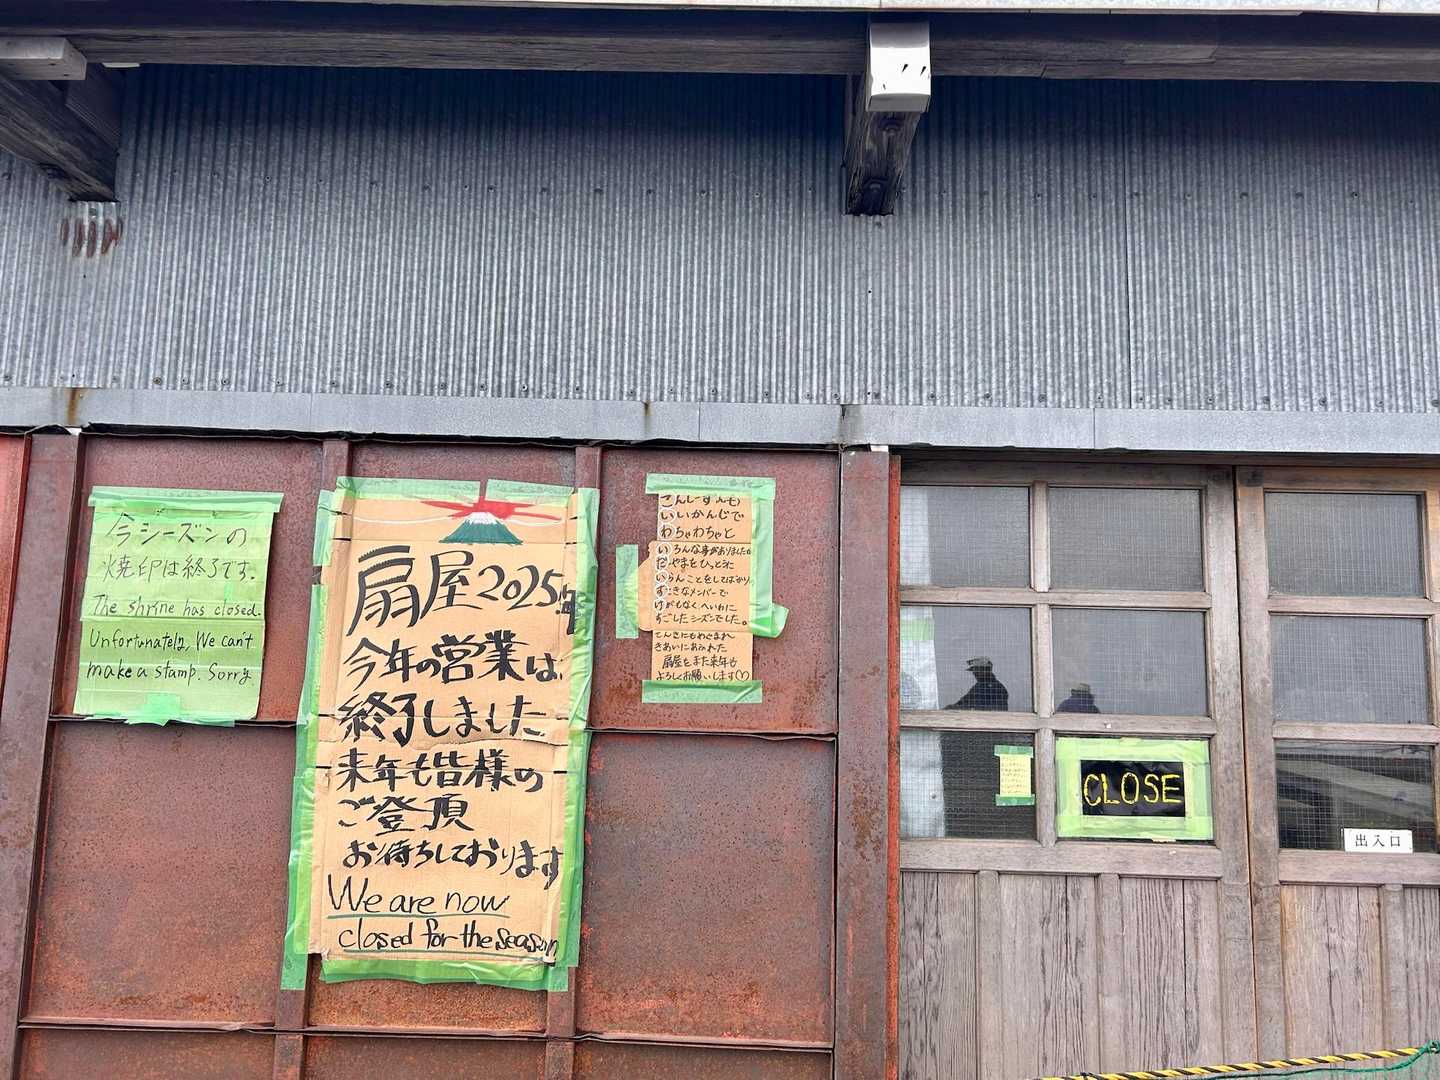 今シーズンの
焼印は終了です.
The shrine has closed.
Unfortunately, We can't
make a stamp. Sorry.
扇屋2025年
今年の営業は
終了しました
来年も皆様の
ご登頂
お待ちしております
We are now
closed for the season
こんしーずんも
いいかんじで
わちゃわちゃと
いろんな事がありましたが
だやまをひっとうに
いらんことをしてばかり。
すきなメンバーで
けがもなくへいわに
すごしたシーズンでした。
てんきにもめぐまれ
きあいにあみれた
扇屋をまた来年も
よろしくお願いします♡
CLOSE
出入口